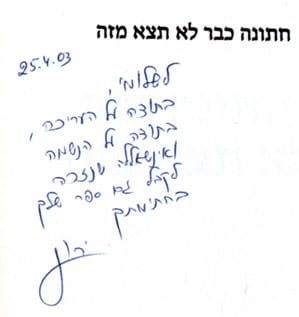 חתונה כבר לא תצא מזה
25.4.03
לשלומי,
בתודה על העריכה,
בתודה על הנשמה
ואינשאללה שנזכה
לקבל גם ספר שלך
בחתימתך
ירון